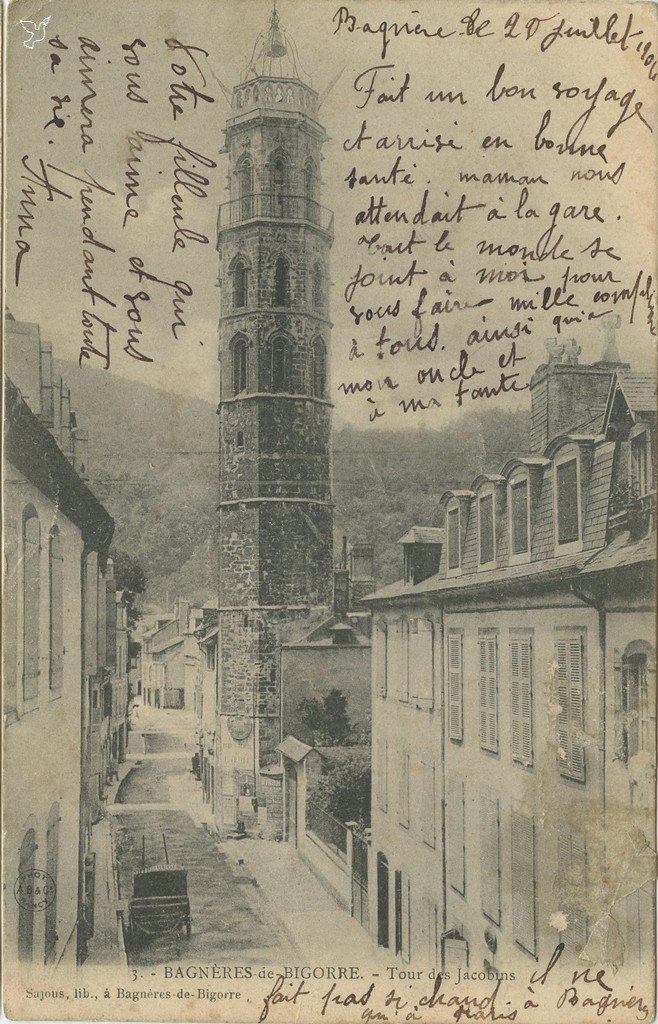 Bagnère le 20 juillet 1904
Fait un bon voyage
et arrivé en bonne
santé. maman nous
attendait à la gare.
Tout le monde se
joint à moi pour
vous faire mille compliments
à tous. ainsi qu'à
mon oncle et
à ma tante
Votre filleule qui
vous aime et vous
aimera pendant toute
sa vie. Anna
3. - BAGNÈRES-de-BIGORRE. - Tour des Jacobins
Sajous, lib., à Bagnères-de-Bigorre
il ne
fait pas si chaud à Bagnères
qu'à Paris
PHOT
A.B & Cº
NANCY